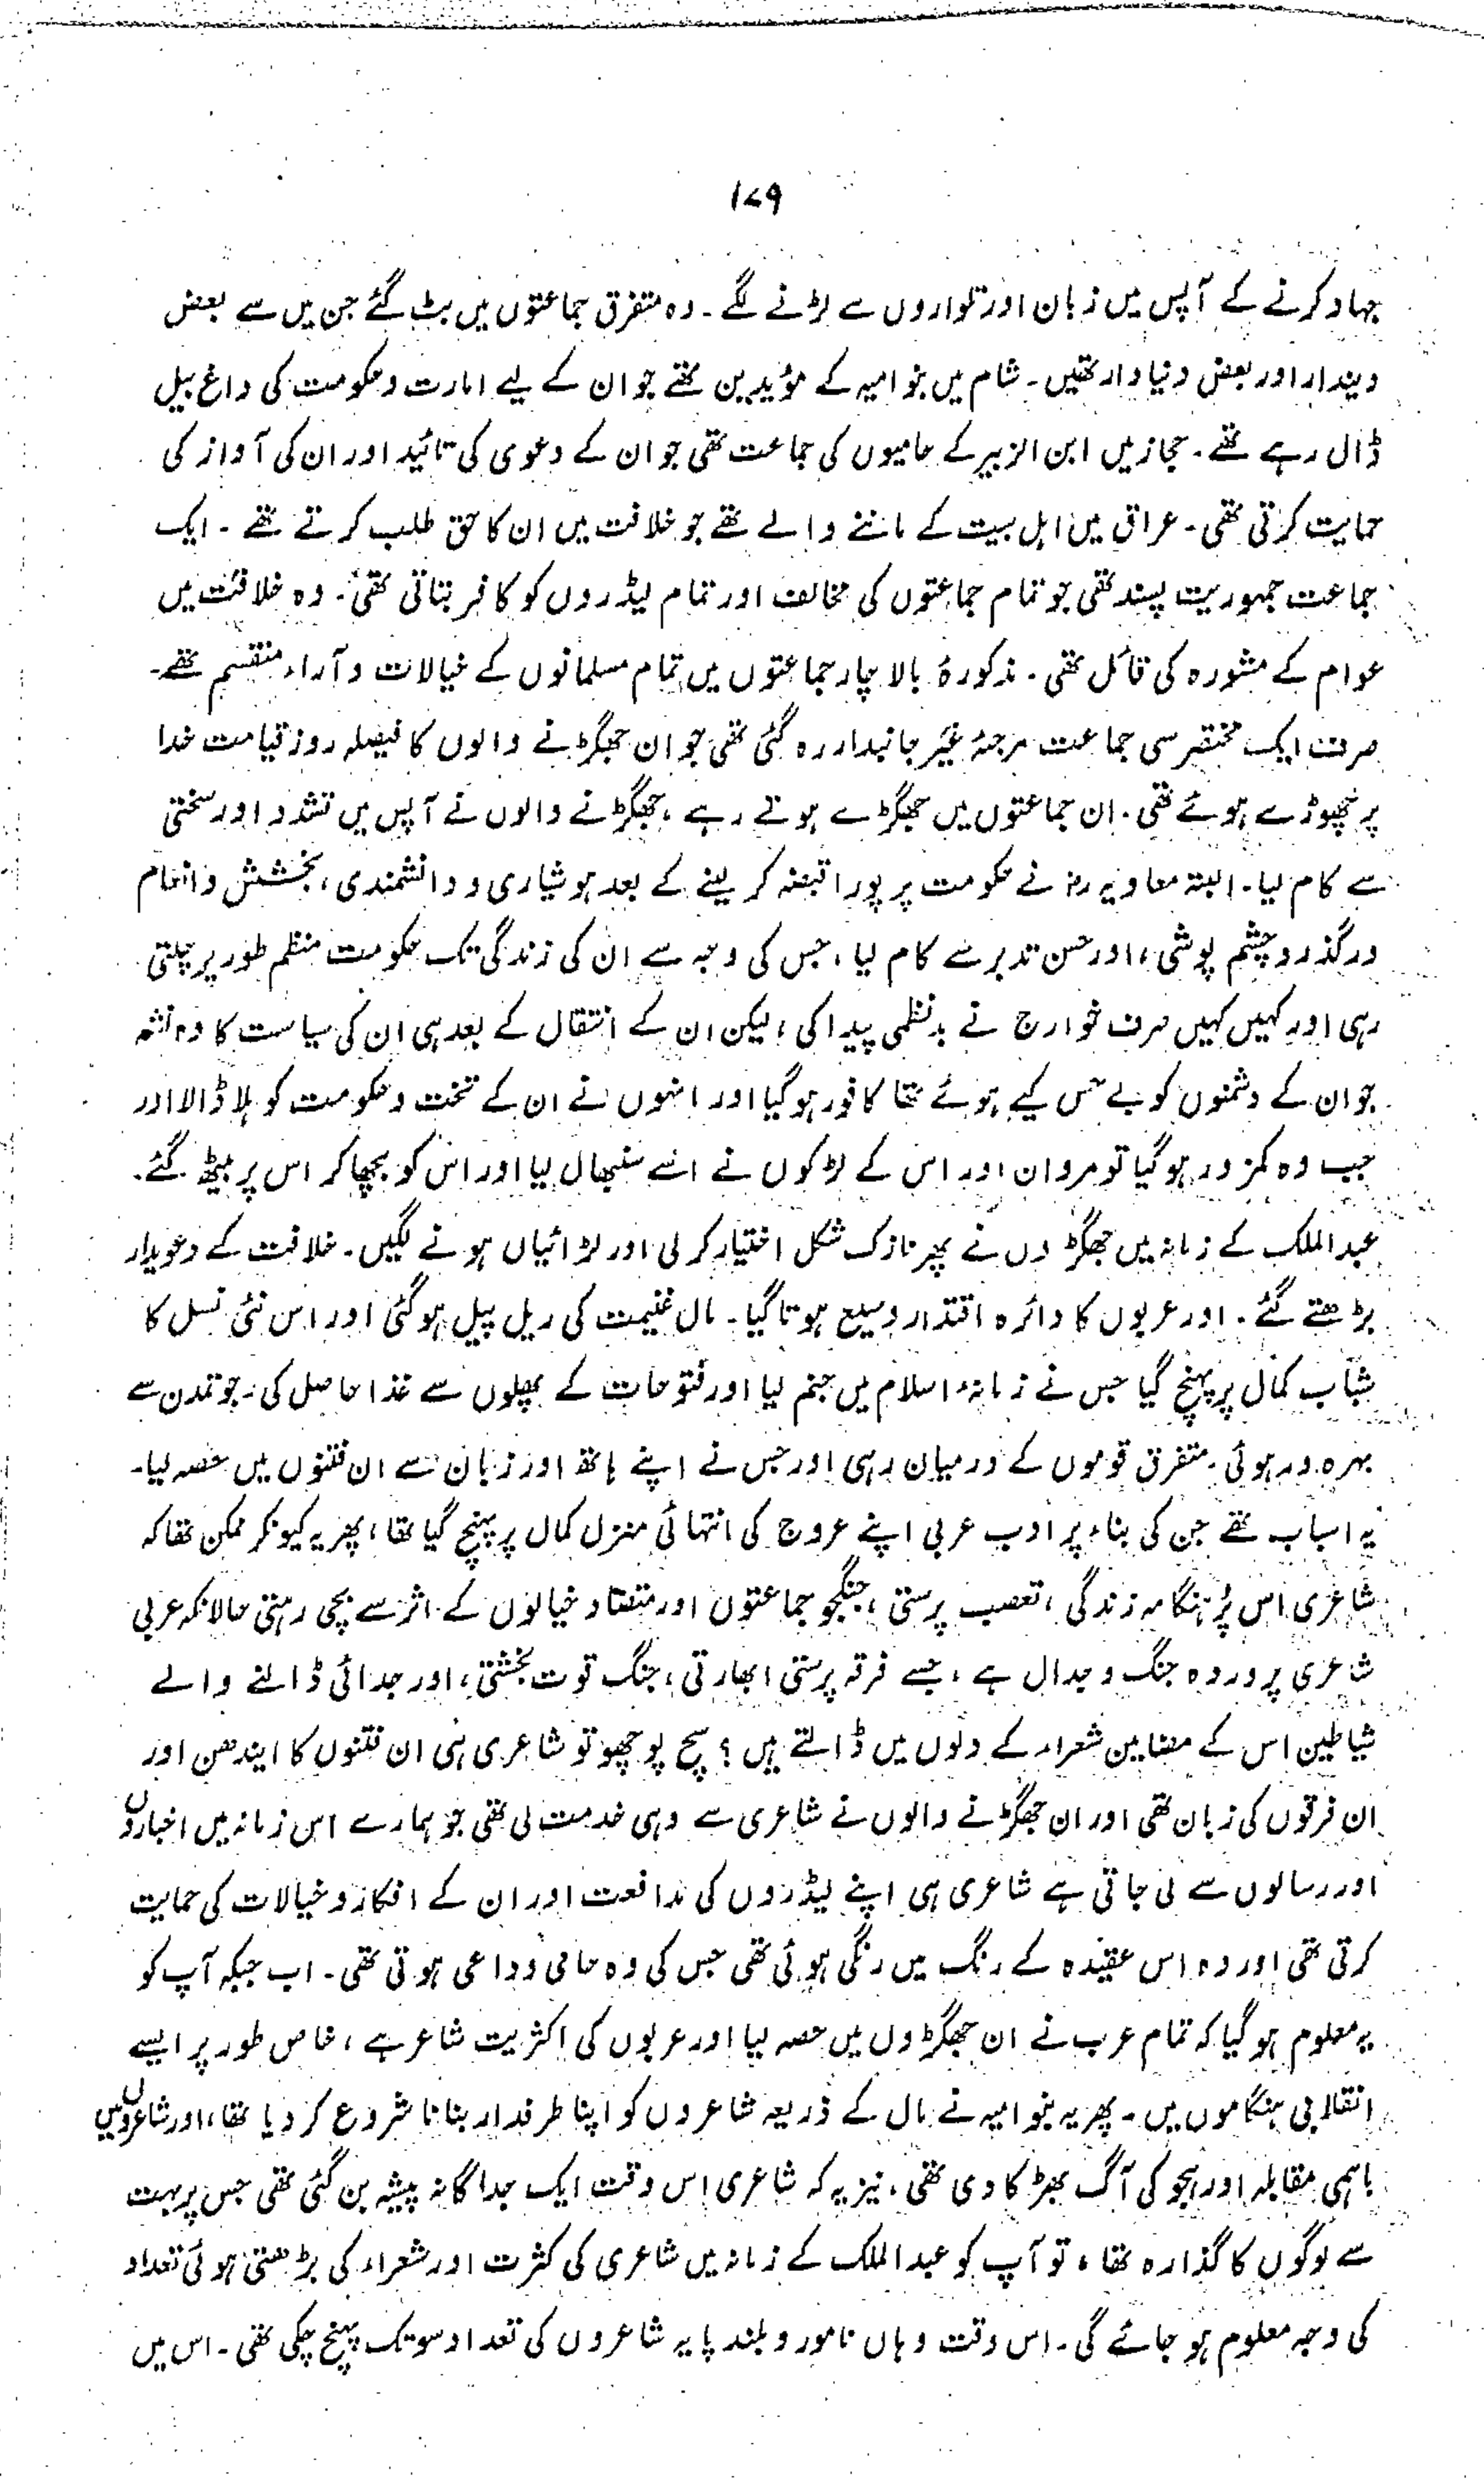 ۱۷۹
جہاد کرنے کے آپس میں زبان اور تلواروں سے لڑنے لگے۔ وہ متفرق جماعتوں میں بٹ گئے جن میں سے بعض
دیندار اور بعض دنیا دار تھیں۔ شام میں بنو امیہ کے مؤیدین تھے جو ان کے لیے امارت و حکومت کی داغ بیل
ڈال رہے تھے۔ حجاز میں ابن الزبیر کے حامیوں کی جماعت تھی جو ان کے دعوی کی تائید اور ان کی آواز کی
حمایت کرتی تھی۔ عراق میں اہل بیت کے ماننے والے تھے جو خلافت میں ان کا حق طلب کرتے تھے۔ ایک
جماعت جمہوریت پسند تھی جو تمام جماعتوں کی مخالف اور تمام لیڈروں کو کافر بتاتی تھی۔ وہ خلافت میں
عوام کے مشورہ کی قائل تھی۔ مذکورۂ بالا چار جماعتوں میں تمام مسلمانوں کے خیالات و آراء منقسم تھے۔
صرف ایک مختصر سی جماعت مرجئہ غیر جانبدار رہ گئی تھی جو ان جھگڑنے والوں کا فیصلہ روز قیامت خدا
پر چھوڑے ہوئے تھی۔ ان جماعتوں میں جھگڑے ہوتے رہے، جھگڑنے والوں نے آپس میں تشدد اور سختی
سے کام لیا۔ البتہ معاویہ رض نے حکومت پر پورا قبضہ کر لینے کے بعد ہوشیاری و دانشمندی، بخشش و انعام
درگذر و چشم پوشی، اور حسن تدبر سے کام لیا، جس کی وجہ سے ان کی زندگی تک حکومت منظم طور پر چلتی
رہی اور کہیں کہیں صرف خوارج نے بدنظمی پیدا کی، لیکن ان کے انتقال کے بعد ہی ان کی سیاست کا وہ نشہ
جو ان کے دشمنوں کو بے حس کیے ہوئے تھا کافور ہو گیا اور انہوں نے ان کے تخت و حکومت کو ہلا ڈالا اور
جب وہ کمزور ہو گیا تو مروان اور اس کے لڑکوں نے اسے سنبھال لیا اور اس کو بچھا کر اس پر بیٹھ گئے۔
عبدالملک کے زمانہ میں جھگڑوں نے پھر نازک شکل اختیار کر لی اور لڑائیاں ہونے لگیں۔ خلافت کے دعویدار
بڑھتے گئے۔ اور عربوں کا دائرہ اقتدار وسیع ہوتا گیا۔ مال غنیمت کی ریل پیل ہو گئی اور اس نئی نسل کا
شباب کمال پر پہنچ گیا جس نے زمانۂ اسلام میں جنم لیا اور فتوحات کے پھلوں سے غذا حاصل کی۔ جو تمدن سے
بہرہ ور ہوئی۔ متفرق قوموں کے درمیان رہی اور جس نے اپنے ہاتھ اور زبان سے ان فتنوں میں حصہ لیا۔
یہ اسباب تھے جن کی بناء پر ادب عربی اپنے عروج کی انتہائی منزل کمال پر پہنچ گیا تھا، پھر یہ کیونکر ممکن تھا کہ
شاعری اس پُر ہنگامہ زندگی، تعصب پرستی، جنگجو جماعتوں اور متضاد خیالوں کے اثر سے بچی رہتی حالانکہ عربی
شاعری پروردہ جنگ و جدال ہے، جسے فرقہ پرستی ابھارتی، جنگ قوت بخشتی، اور جدائی ڈالنے والے
شیاطین اس کے مضامین شعراء کے دلوں میں ڈالتے ہیں؟ سچ پوچھو تو شاعری ہی ان فتنوں کا ایندھن اور
ان فرقوں کی زبان تھی اور ان جھگڑنے والوں نے شاعری سے وہی خدمت لی تھی جو ہمارے اس زمانہ میں اخباروں
اور رسالوں سے لی جاتی ہے شاعری ہی اپنے لیڈروں کی مدافعت اور ان کے افکار و خیالات کی حمایت
کرتی تھی اور وہ اس عقیدہ کے رنگ میں رنگی ہوئی تھی جس کی وہ حامی و داعی ہوتی تھی۔ اب جبکہ آپ کو
یہ معلوم ہو گیا کہ تمام عرب نے ان جھگڑوں میں حصہ لیا اور عربوں کی اکثریت شاعر ہے، خاص طور پر ایسے
انقلابی ہنگاموں میں۔ پھر یہ بنو امیہ نے مال کے ذریعہ شاعروں کو اپنا طرفدار بنانا شروع کر دیا تھا، اور شاعروں میں
باہمی مقابلہ اور ہجو کی آگ بھڑکا دی تھی، نیز یہ کہ شاعری اس وقت ایک جداگانہ پیشہ بن گئی تھی جس پر بہت
سے لوگوں کا گذارہ تھا، تو آپ کو عبدالملک کے زمانہ میں شاعری کی کثرت اور شعراء کی بڑھتی ہوئی تعداد
کی وجہ معلوم ہو جائے گی۔ اس وقت وہاں نامور و بلند پایہ شاعروں کی تعداد سو تک پہنچ چکی تھی۔ اس میں